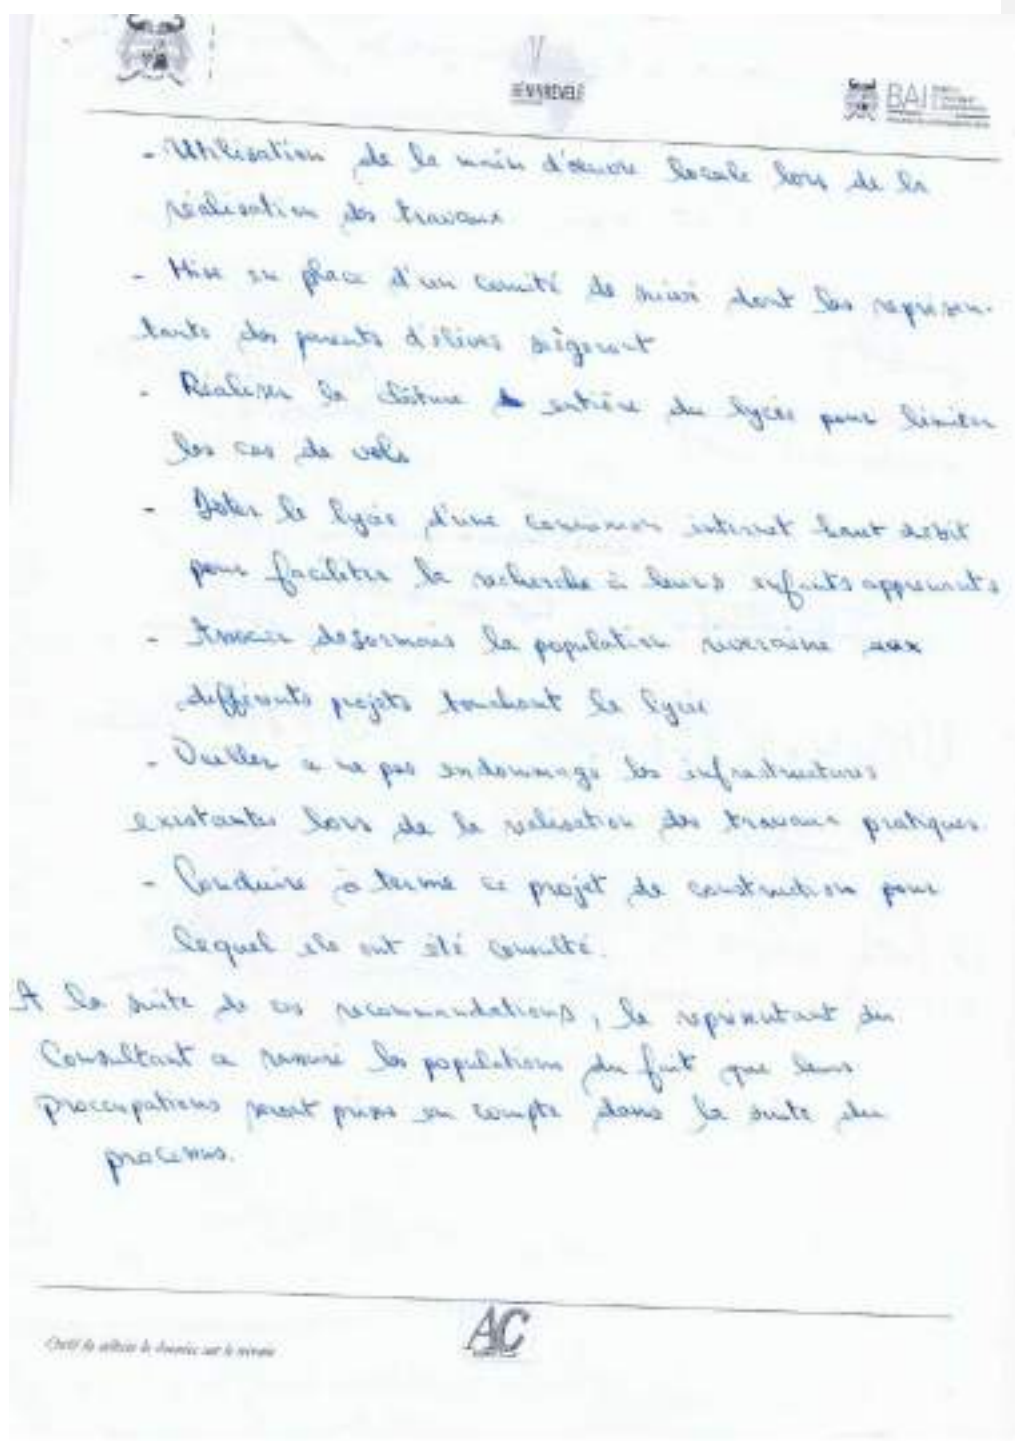 BÉNIN RÉVÉLÉ
BAI
- Utilisation de la main d'œuvre locale lors de la
réalisation des travaux
- Mise en place d'un comité de suivi dont les représen-
tants des parents d'élèves siègeront
- Réaliser la clôture entière du lycée pour limiter
les cas de vols
- Doter le lycée d'une connexion internet haut débit
pour faciliter la recherche à leurs enfants apprenants
- Associer désormais la population riveraine aux
différents projets touchant le lycée
- Veiller à ne pas endommagé les infrastructures
existantes lors de la réalisation des travaux pratiques.
- Conduire à terme ce projet de construction pour
lequel ils ont été consulté.
A la suite de ces recommandations, le représentant du
Consultant a rassuré les populations du fait que leurs
préoccupations seront prises en compte dans la suite du
processus.
AC
Outil de collecte de données sur le terrain